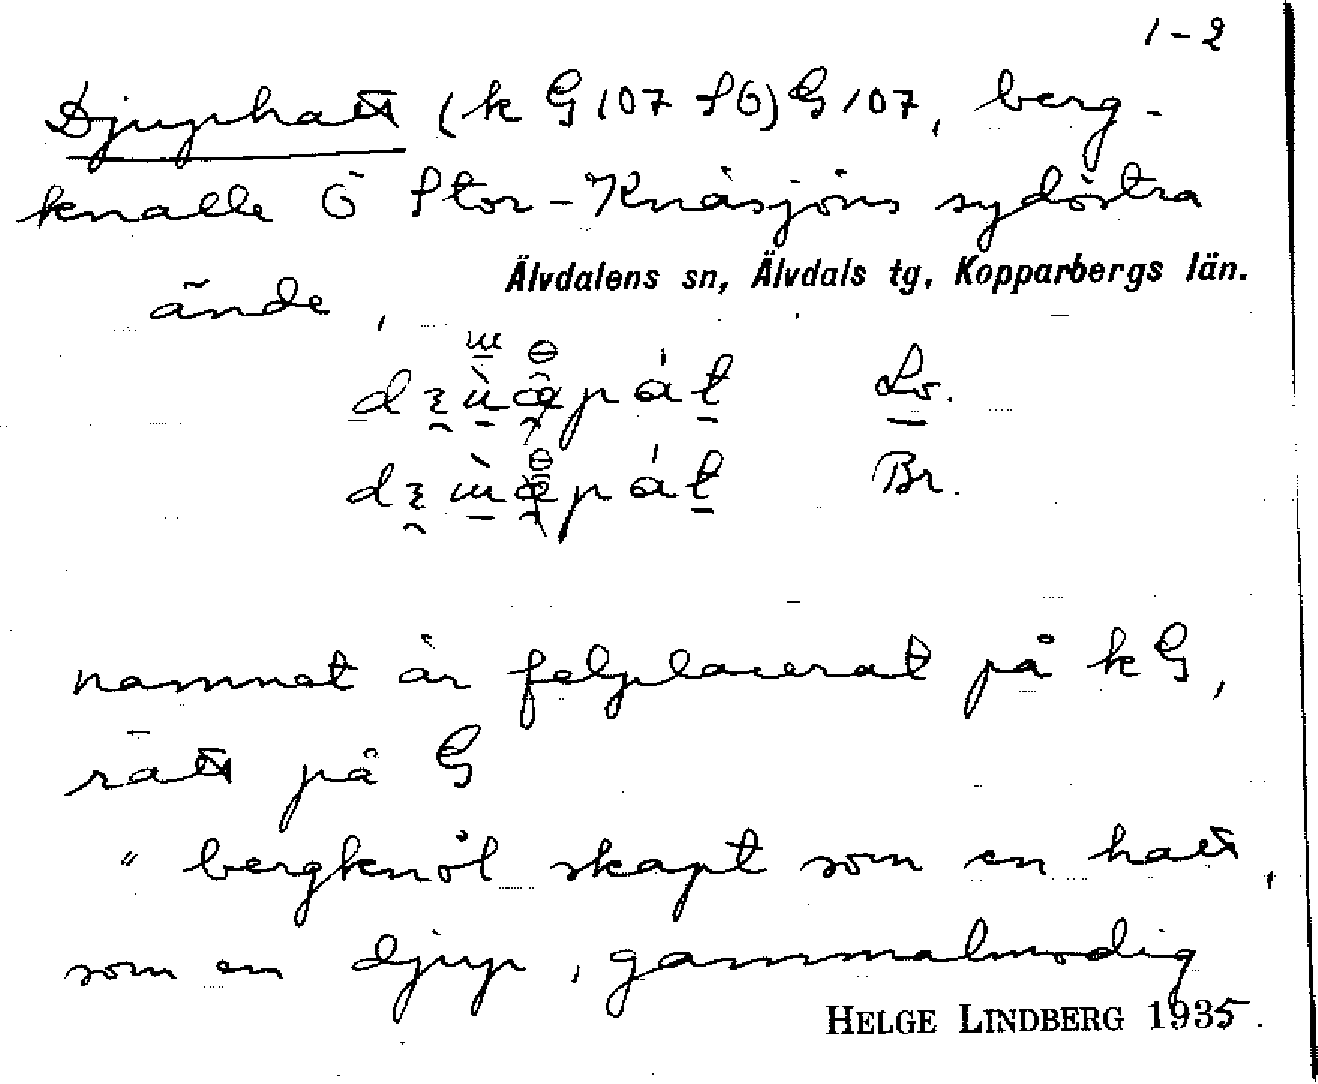 1-2
Djuphatt (k G 107 SO) G 107, berg-
knalle Ö Stor-Knåsjöns sydöstra
Älvdalens sn, Älvdals tg, Kopparbergs län.
ände,
Lo.
Br.
namnet är felplacerat på k G,
rätt på G
" bergknöl skapt som en hatt,
som en djup, gammalmodig
HELGE LINDBERG 1935.